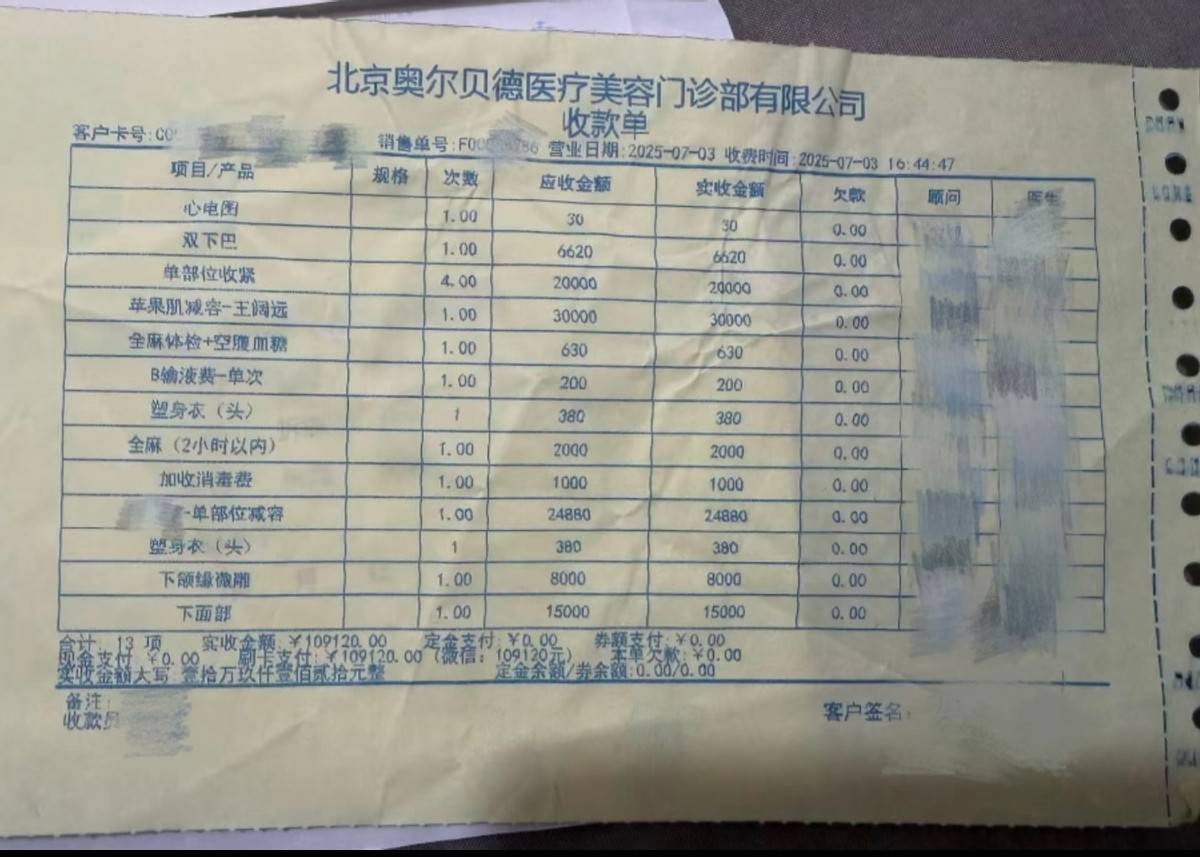 北京奥尔贝德医疗美容门诊部有限公司
收款单
客户卡号: 销售单号: 营业日期:2025-07-03 收费时间:2025-07-03 16:44:47
项目/产品 规格 次数 应收金额 实收金额 欠款 顾问 医生
心电图 1.00 30 30 0.00
双下巴 1.00 6620 6620 0.00
单部位收紧 4.00 20000 20000 0.00
苹果肌减容-王阔远 1.00 30000 30000 0.00
全麻体检+空腹血糖 1.00 630 630 0.00
B输液费-单次 1.00 200 200 0.00
塑身衣（头） 1 380 380 0.00
全麻（2小时以内） 1.00 2000 2000 0.00
加收消毒费 1.00 1000 1000 0.00
-单部位减容 1.00 24880 24880 0.00
塑身衣（头） 1 380 380 0.00
下颌缘微雕 1.00 8000 8000 0.00
下面部 1.00 15000 15000 0.00
合计: 13 项 实收金额:￥109120.00 定金支付:￥0.00 券额支付:￥0.00
现金支付:￥0.00 刷卡支付:￥109120.00（微信：109120元） 本单欠款:￥0.00
实收金额大写:壹拾万玖仟壹佰贰拾元整 定金余额/券余额:0.00/0.00
备注:
收款员 客户签名: